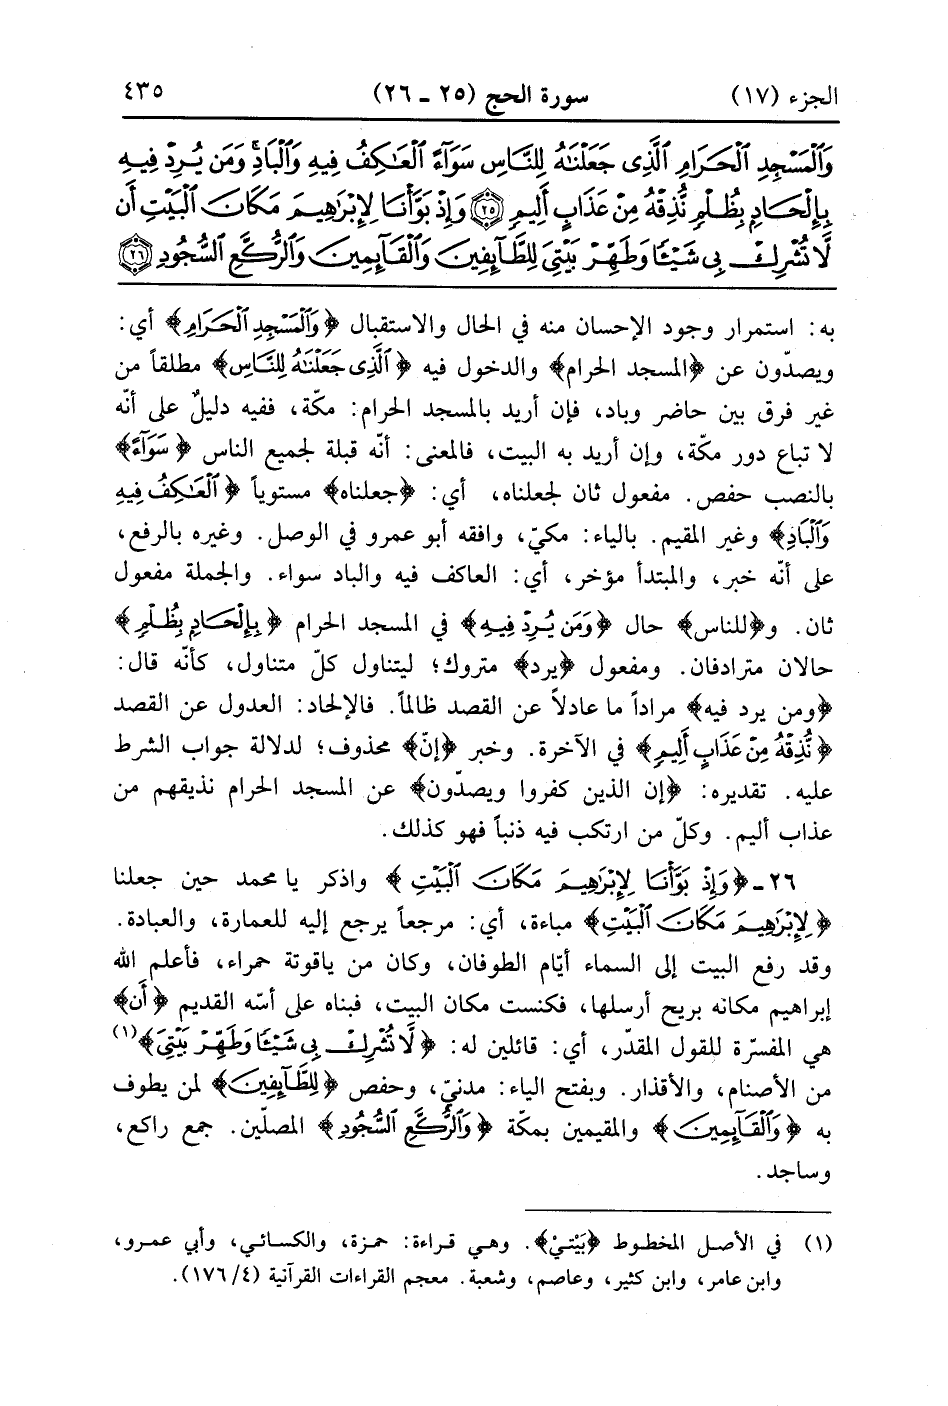 الجزء (١٧) سورة الحج (٢٥ ـ ٢٦) ٤٣٥
وَٱلْمَسْجِدِ ٱلْحَرَامِ ٱلَّذِى جَعَلْنَٰهُ لِلنَّاسِ سَوَآءً ٱلْعَٰكِفُ فِيهِ وَٱلْبَادِ ۚ وَمَن يُرِدْ فِيهِ
بِإِلْحَادٍۭ بِظُلْمٍ نُّذِقْهُ مِنْ عَذَابٍ أَلِيمٍ ٢٥ وَإِذْ بَوَّأْنَا لِإِبْرَٰهِيمَ مَكَانَ ٱلْبَيْتِ أَن
لَّا تُشْرِكْ بِى شَيْـًٔا وَطَهِّرْ بَيْتِىَ لِلطَّآئِفِينَ وَٱلْقَآئِمِينَ وَٱلرُّكَّعِ ٱلسُّجُودِ ٢٦
به: استمرار وجود الإحسان منه في الحال والاستقبال ﴿وَٱلْمَسْجِدِ ٱلْحَرَامِ﴾ أي:
ويصدّون عن ﴿المسجد الحرام﴾ والدخول فيه ﴿ٱلَّذِى جَعَلْنَٰهُ لِلنَّاسِ﴾ مطلقاً من
غير فرق بين حاضر وباد، فإن أريد بالمسجد الحرام: مكّة، ففيه دليلٌ على أنّه
لا تباع دور مكّة، وإن أريد به البيت، فالمعنى: أنّه قبلة لجميع الناس ﴿سَوَآءً﴾
بالنصب حفص. مفعول ثان لجعلناه، أي: ﴿جعلناه﴾ مستوياً ﴿ٱلْعَٰكِفُ فِيهِ
وَٱلْبَادِ﴾ وغير المقيم. بالياء: مكيّ، وافقه أبو عمرو في الوصل. وغيره بالرفع،
على أنّه خبر، والمبتدأ مؤخر، أي: العاكف فيه والباد سواء. والجملة مفعول
ثان. و﴿للناس﴾ حال ﴿وَمَن يُرِدْ فِيهِ﴾ في المسجد الحرام ﴿بِإِلْحَادٍۭ بِظُلْمٍ﴾
حالان مترادفان. ومفعول ﴿يرد﴾ متروك؛ ليتناول كلّ متناول، كأنّه قال:
﴿ومن يرد فيه﴾ مراداً ما عادلاً عن القصد ظالماً. فالإلحاد: العدول عن القصد
﴿نُّذِقْهُ مِنْ عَذَابٍ أَلِيمٍ﴾ في الآخرة. وخبر ﴿إنّ﴾ محذوف؛ لدلالة جواب الشرط
عليه. تقديره: ﴿إن الذين كفروا ويصدّون﴾ عن المسجد الحرام نذيقهم من
عذاب أليم. وكلّ من ارتكب فيه ذنباً فهو كذلك.
٢٦ ـ ﴿وَإِذْ بَوَّأْنَا لِإِبْرَٰهِيمَ مَكَانَ ٱلْبَيْتِ﴾ واذكر يا محمد حين جعلنا
﴿لِإِبْرَٰهِيمَ مَكَانَ ٱلْبَيْتِ﴾ مباءة، أي: مرجعاً يرجع إليه للعمارة، والعبادة.
وقد رفع البيت إلى السماء أيّام الطوفان، وكان من ياقوتة حمراء، فأعلم الله
إبراهيم مكانه بريح أرسلها، فكنست مكان البيت، فبناه على أسّه القديم ﴿أَن﴾
هي المفسّرة للقول المقدّر، أي: قائلين له: ﴿لَّا تُشْرِكْ بِى شَيْـًٔا وَطَهِّرْ بَيْتِىَ﴾(١)
من الأصنام، والأقذار. وبفتح الياء: مدنيّ، وحفص ﴿لِلطَّآئِفِينَ﴾ لمن يطوف
به ﴿وَٱلْقَآئِمِينَ﴾ والمقيمين بمكّة ﴿وَٱلرُّكَّعِ ٱلسُّجُودِ﴾ المصلّين. جمع راكع،
وساجد.
(١) في الأصل المخطوط ﴿بَيْتيْ﴾. وهي قراءة: حمزة، والكسائي، وأبي عمرو،
وابن عامر، وابن كثير، وعاصم، وشعبة. معجم القراءات القرآنية (٤/ ١٧٦).